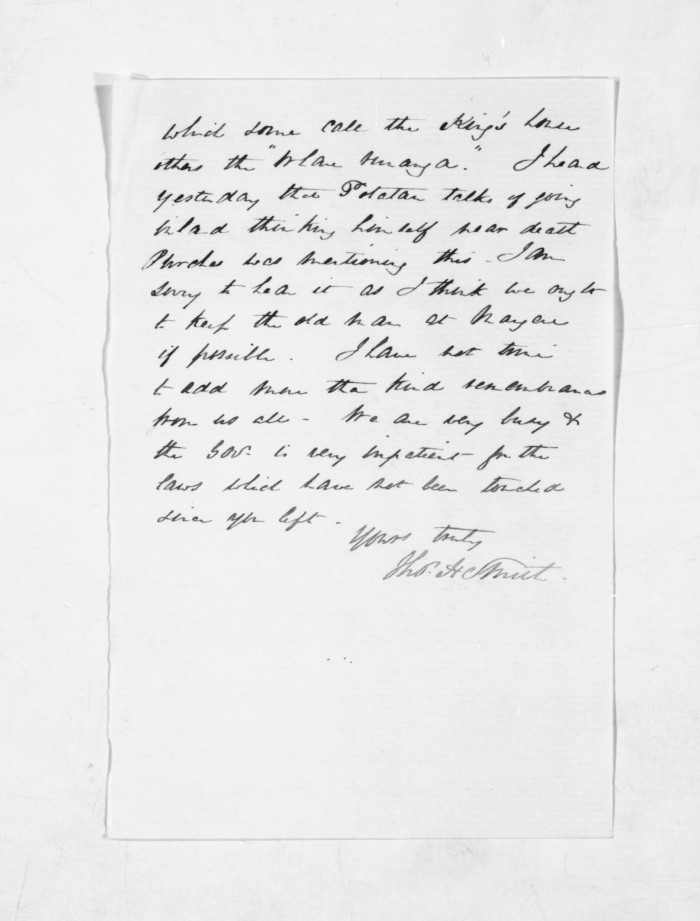 which some call the King's house
others the "Whare runanga." I heard
yesterday that Potatau talks of going
inland thinking himself near death
Purchas was mentioning this - I am
sorry to hear it as I think we ought
to keep the old man at Mangere
if possible. I have not time
to add more than kind remembrances
from us all - We are very busy &
the Govr. is very impatient for the
laws which have not been touched
since you left -
Yours truly
Thos. H Smith.